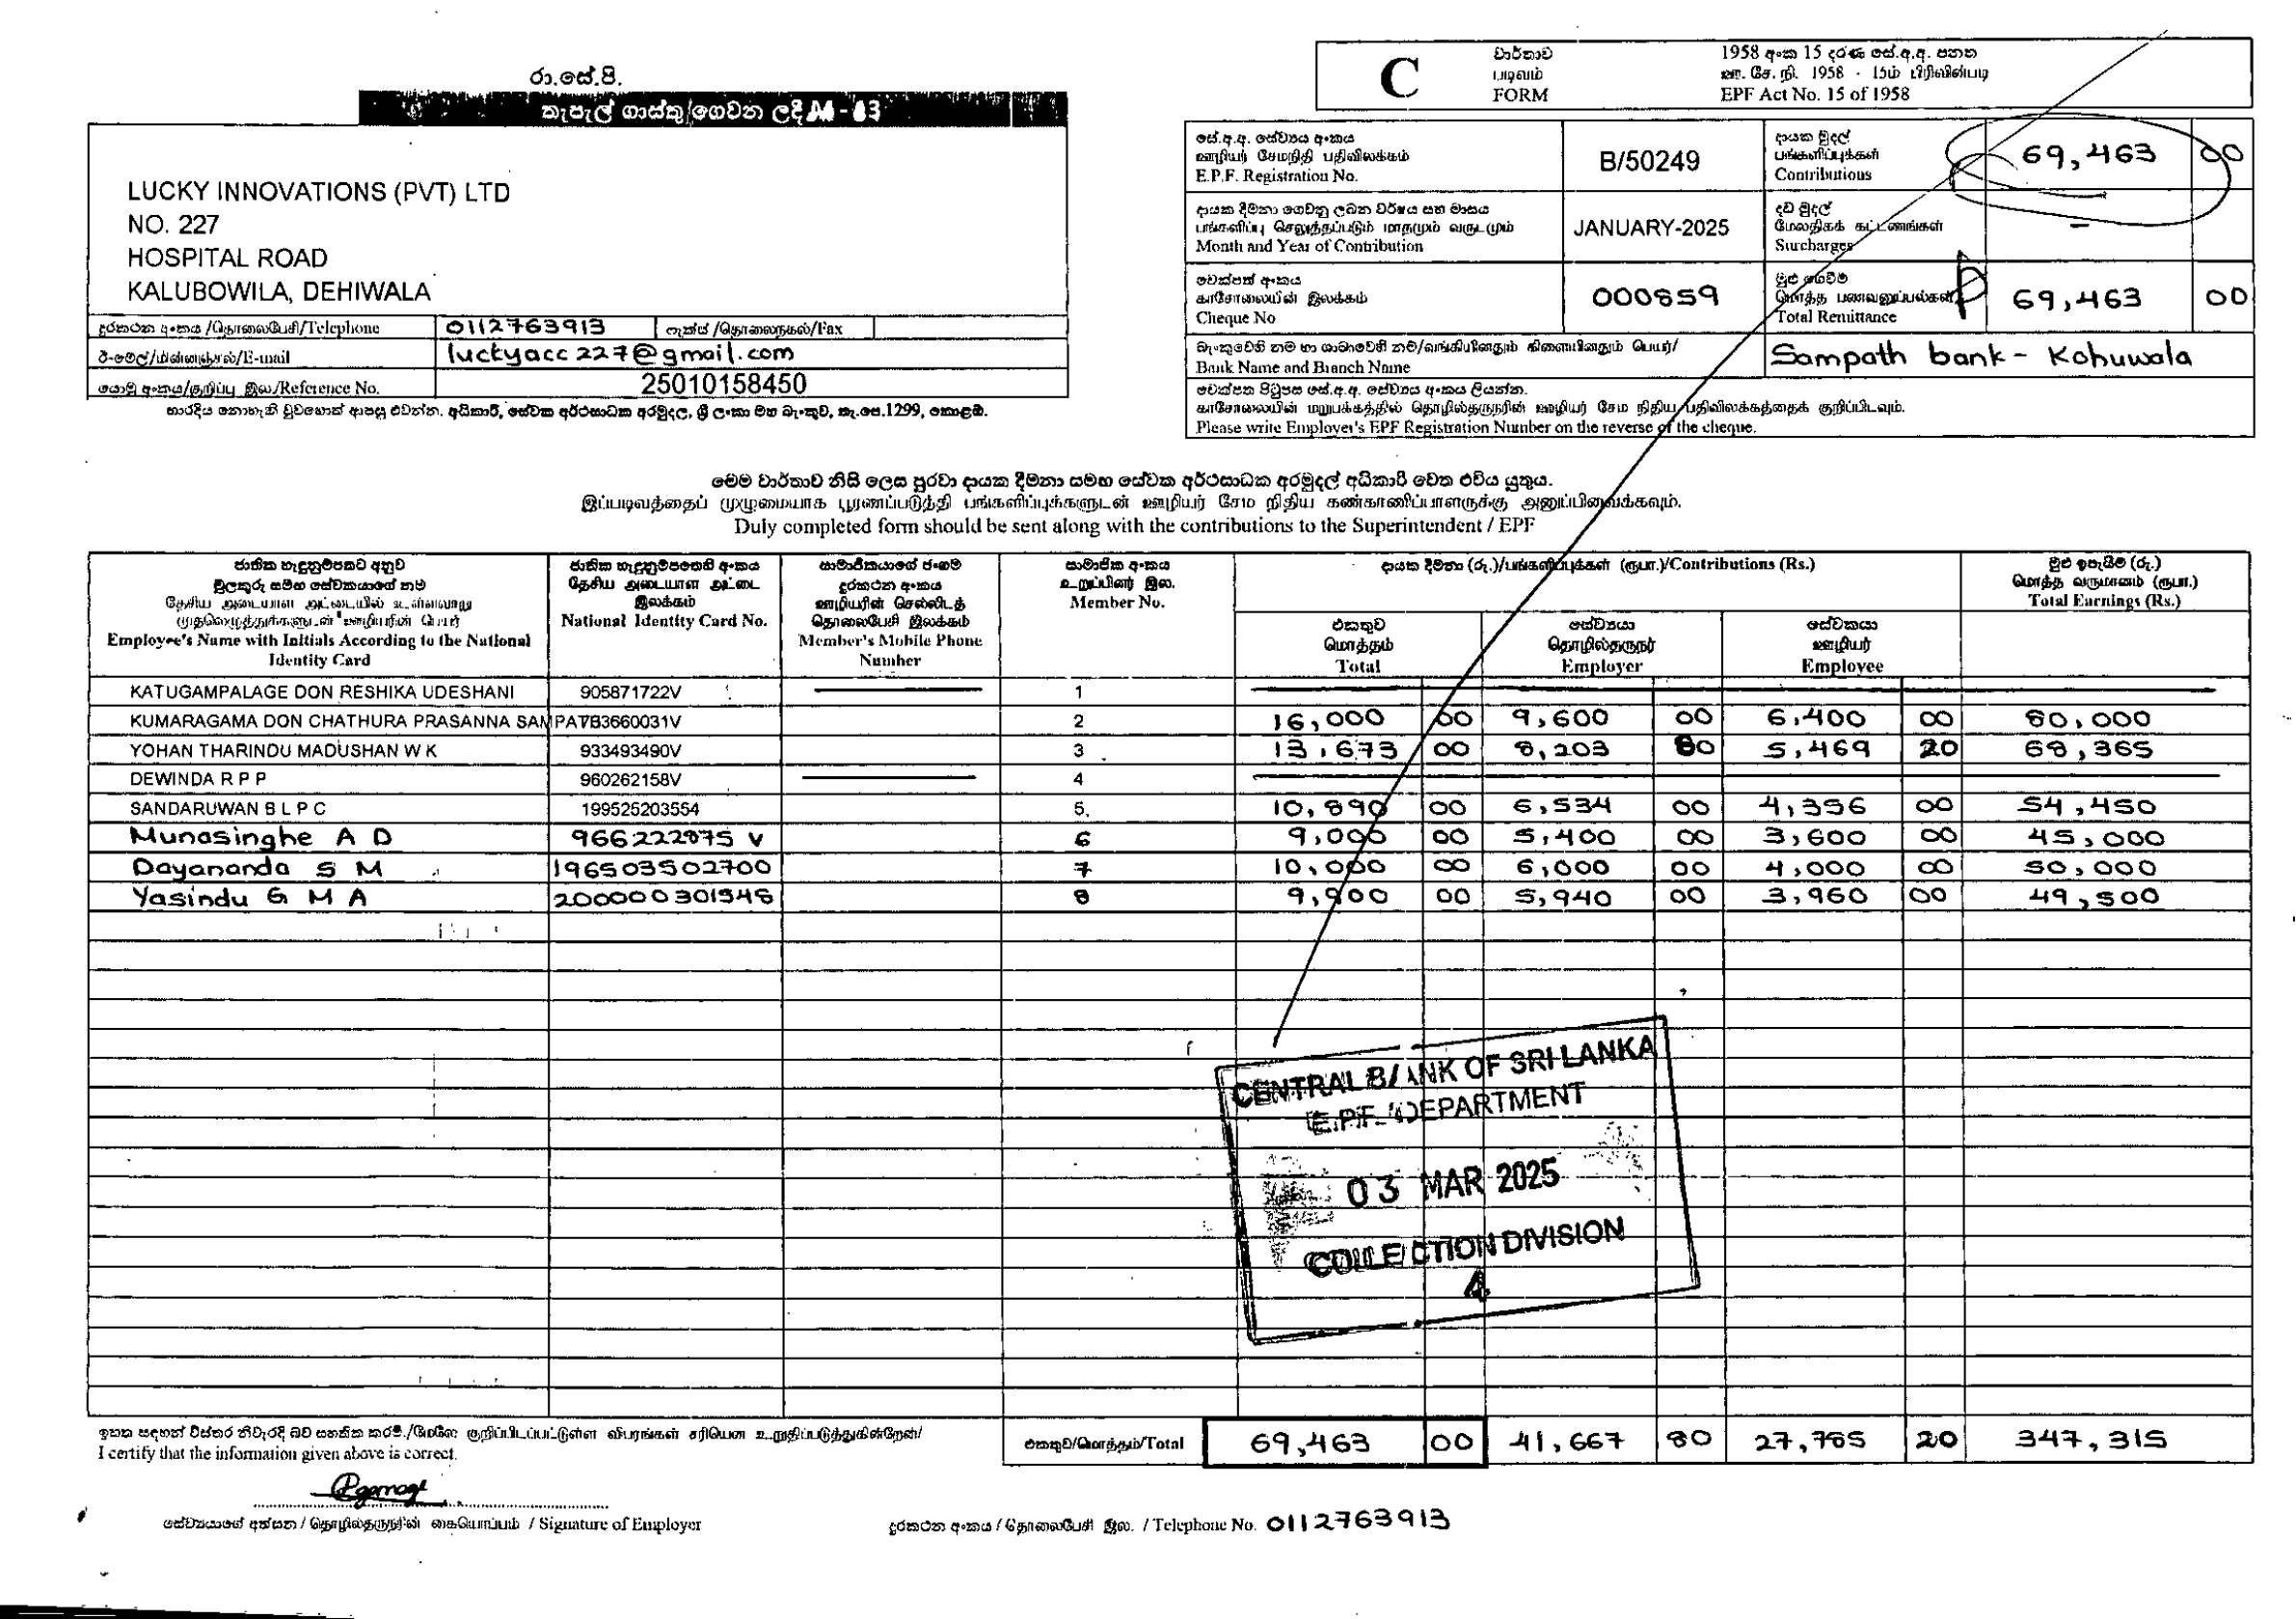 රා.සේ.පි.
තැපැල් ගාස්තු ගෙවන ලදී
LUCKY INNOVATIONS (PVT) LTD
NO. 227
HOSPITAL ROAD
KALUBOWILA, DEHIWALA
දුරකථන අංකය /தொலைபேசி/Telephone 0112763913 ෆැක්ස් /தொலைநகல்/Fax
ඊ-මේල්/மின்னஞ்சல்/E-mail luckyacc227@gmail.com
යොමු අංකය/குறிப்பு இல./Reference No. 25010158450
භාරදිය නොහැකි වුවහොත් ආපසු එවන්න. අධිකාරී, සේවක අර්ථසාධක අරමුදල, ශ්‍රී ලංකා මහ බැංකුව, තැ.පෙ.1299, කොළඹ.
C
වාර්තාව
படிவம்
FORM
1958 අංක 15 දරණ සේ.අ.අ. පනත
ஊ. சே. நி. 1958 - 15ம் பிரிவின்படி
EPF Act No. 15 of 1958
සේ.අ.අ. සේව්‍යය අංකය
ஊழியர் சேமநிதி பதிவிலக்கம்
E.P.F. Registration No.
B/50249
දායක මුදල්
பங்களிப்புக்கள்
Contributions
69,463 00
දායක දීමනා ගෙවනු ලබන වර්ෂය සහ මාසය
பங்களிப்பு செலுத்தப்படும் மாதமும் வருடமும்
Month and Year of Contribution
JANUARY-2025
දඩ මුදල්
மேலதிகக் கட்டணங்கள்
Surcharges
-
චෙක්පත් අංකය
காசோலையின் இலக்கம்
Cheque No
000859
මුළු ගෙවීම්
மொத்த பணவனுப்பல்கள்
Total Remittance
69,463 00
බැංකුවෙහි නම හා ශාඛාවෙහි නම/வங்கியினதும் கிளையினதும் பெயர்/
Bank Name and Branch Name
Sampath bank - Kohuwala
චෙක්පත පිටුපස සේ.අ.අ. සේව්‍යය අංකය ලියන්න.
காசோலையின் மறுபக்கத்தில் தொழில்தருநரின் ஊழியர் சேம நிதிய பதிவிலக்கத்தைக் குறிப்பிடவும்.
Please write Employer's EPF Registration Number on the reverse of the cheque.
මෙම වාර්තාව නිසි ලෙස පුරවා දායක දීමනා සමඟ සේවක අර්ථසාධක අරමුදල් අධිකාරී වෙත එවිය යුතුය.
இப்படிவத்தைப் முழுமையாக பூரணப்படுத்தி பங்களிப்புக்களுடன் ஊழியர் சேம நிதிய கண்காணிப்பாளருக்கு அனுப்பிவைக்கவும்.
Duly completed form should be sent along with the contributions to the Superintendent / EPF
ජාතික හැඳුනුම්පතට අනුව
මුලකුරු සමඟ සේවකයාගේ නම
தேசிய அடையாள அட்டையில் உள்ளவாறு
முதலெழுத்துக்களுடன் ஊழியரின் பெயர்
Employee's Name with Initials According to the National
Identity Card
ජාතික හැඳුනුම්පතෙහි අංකය
தேசிய அடையாள அட்டை
இலக்கம்
National Identity Card No.
සාමාජිකයාගේ ජංගම
දුරකථන අංකය
ஊழியரின் செல்லிடத்
தொலைபேசி இலக்கம்
Member's Mobile Phone
Number
සාමාජික අංකය
உறுப்பினர் இல.
Member No.
දායක දීමනා (රු.)/பங்களிப்புக்கள் (ரூபா.)/Contributions (Rs.)
එකතුව
மொத்தம்
Total
සේව්‍යයා
தொழில்தருநர்
Employer
සේවකයා
ஊழியர்
Employee
මුළු ඉපැයීම් (රු.)
மொத்த வருமானம் (ரூபா.)
Total Earnings (Rs.)
KATUGAMPALAGE DON RESHIKA UDESHANI 905871722V 1
KUMARAGAMA DON CHATHURA PRASANNA SAMPAT 783660031V 2 16,000 00 9,600 00 6,400 00 80,000
YOHAN THARINDU MADUSHAN W K 933493490V 3 13,673 00 8,203 80 5,469 20 68,365
DEWINDA R P P 960262158V 4
SANDARUWAN B L P C 199525203554 5. 10,890 00 6,534 00 4,356 00 54,450
Munasinghe A D 966222875 V 6 9,000 00 5,400 00 3,600 00 45,000
Dayananda S M 196503502700 7 10,000 00 6,000 00 4,000 00 50,000
Yasindu G M A 200000301548 8 9,900 00 5,940 00 3,960 00 49,500
CENTRAL BANK OF SRI LANKA
E.P.F. DEPARTMENT
03 MAR 2025
COLLECTION DIVISION
4
ඉහත සඳහන් විස්තර නිවැරදි බව සහතික කරමි./மேலே குறிப்பிடப்பட்டுள்ள விபரங்கள் சரியென உறுதிப்படுத்துகின்றேன்/
I certify that the information given above is correct.
එකතුව/மொத்தம்/Total 69,463 00 41,667 80 27,785 20 347,315
සේව්‍යයාගේ අත්සන / தொழில்தருநரின் கையொப்பம் / Signature of Employer
දුරකථන අංකය / தொலைபேசி இல. / Telephone No. 0112763913